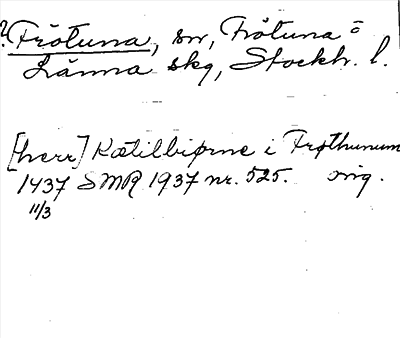 ? Frötuna, sn, Frötuna o
Länna skg, Stockh. l.
[herr] Kætilbiørne i Frøthunum
1437 SMR 1937 nr. 525. orig.
11/3